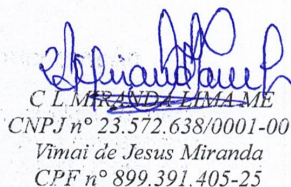 C L MIRANDA LIMA ME
CNPJ nº 23.572.638/0001-00
Vimai de Jesus Miranda
CPF nº 899.391.405-25